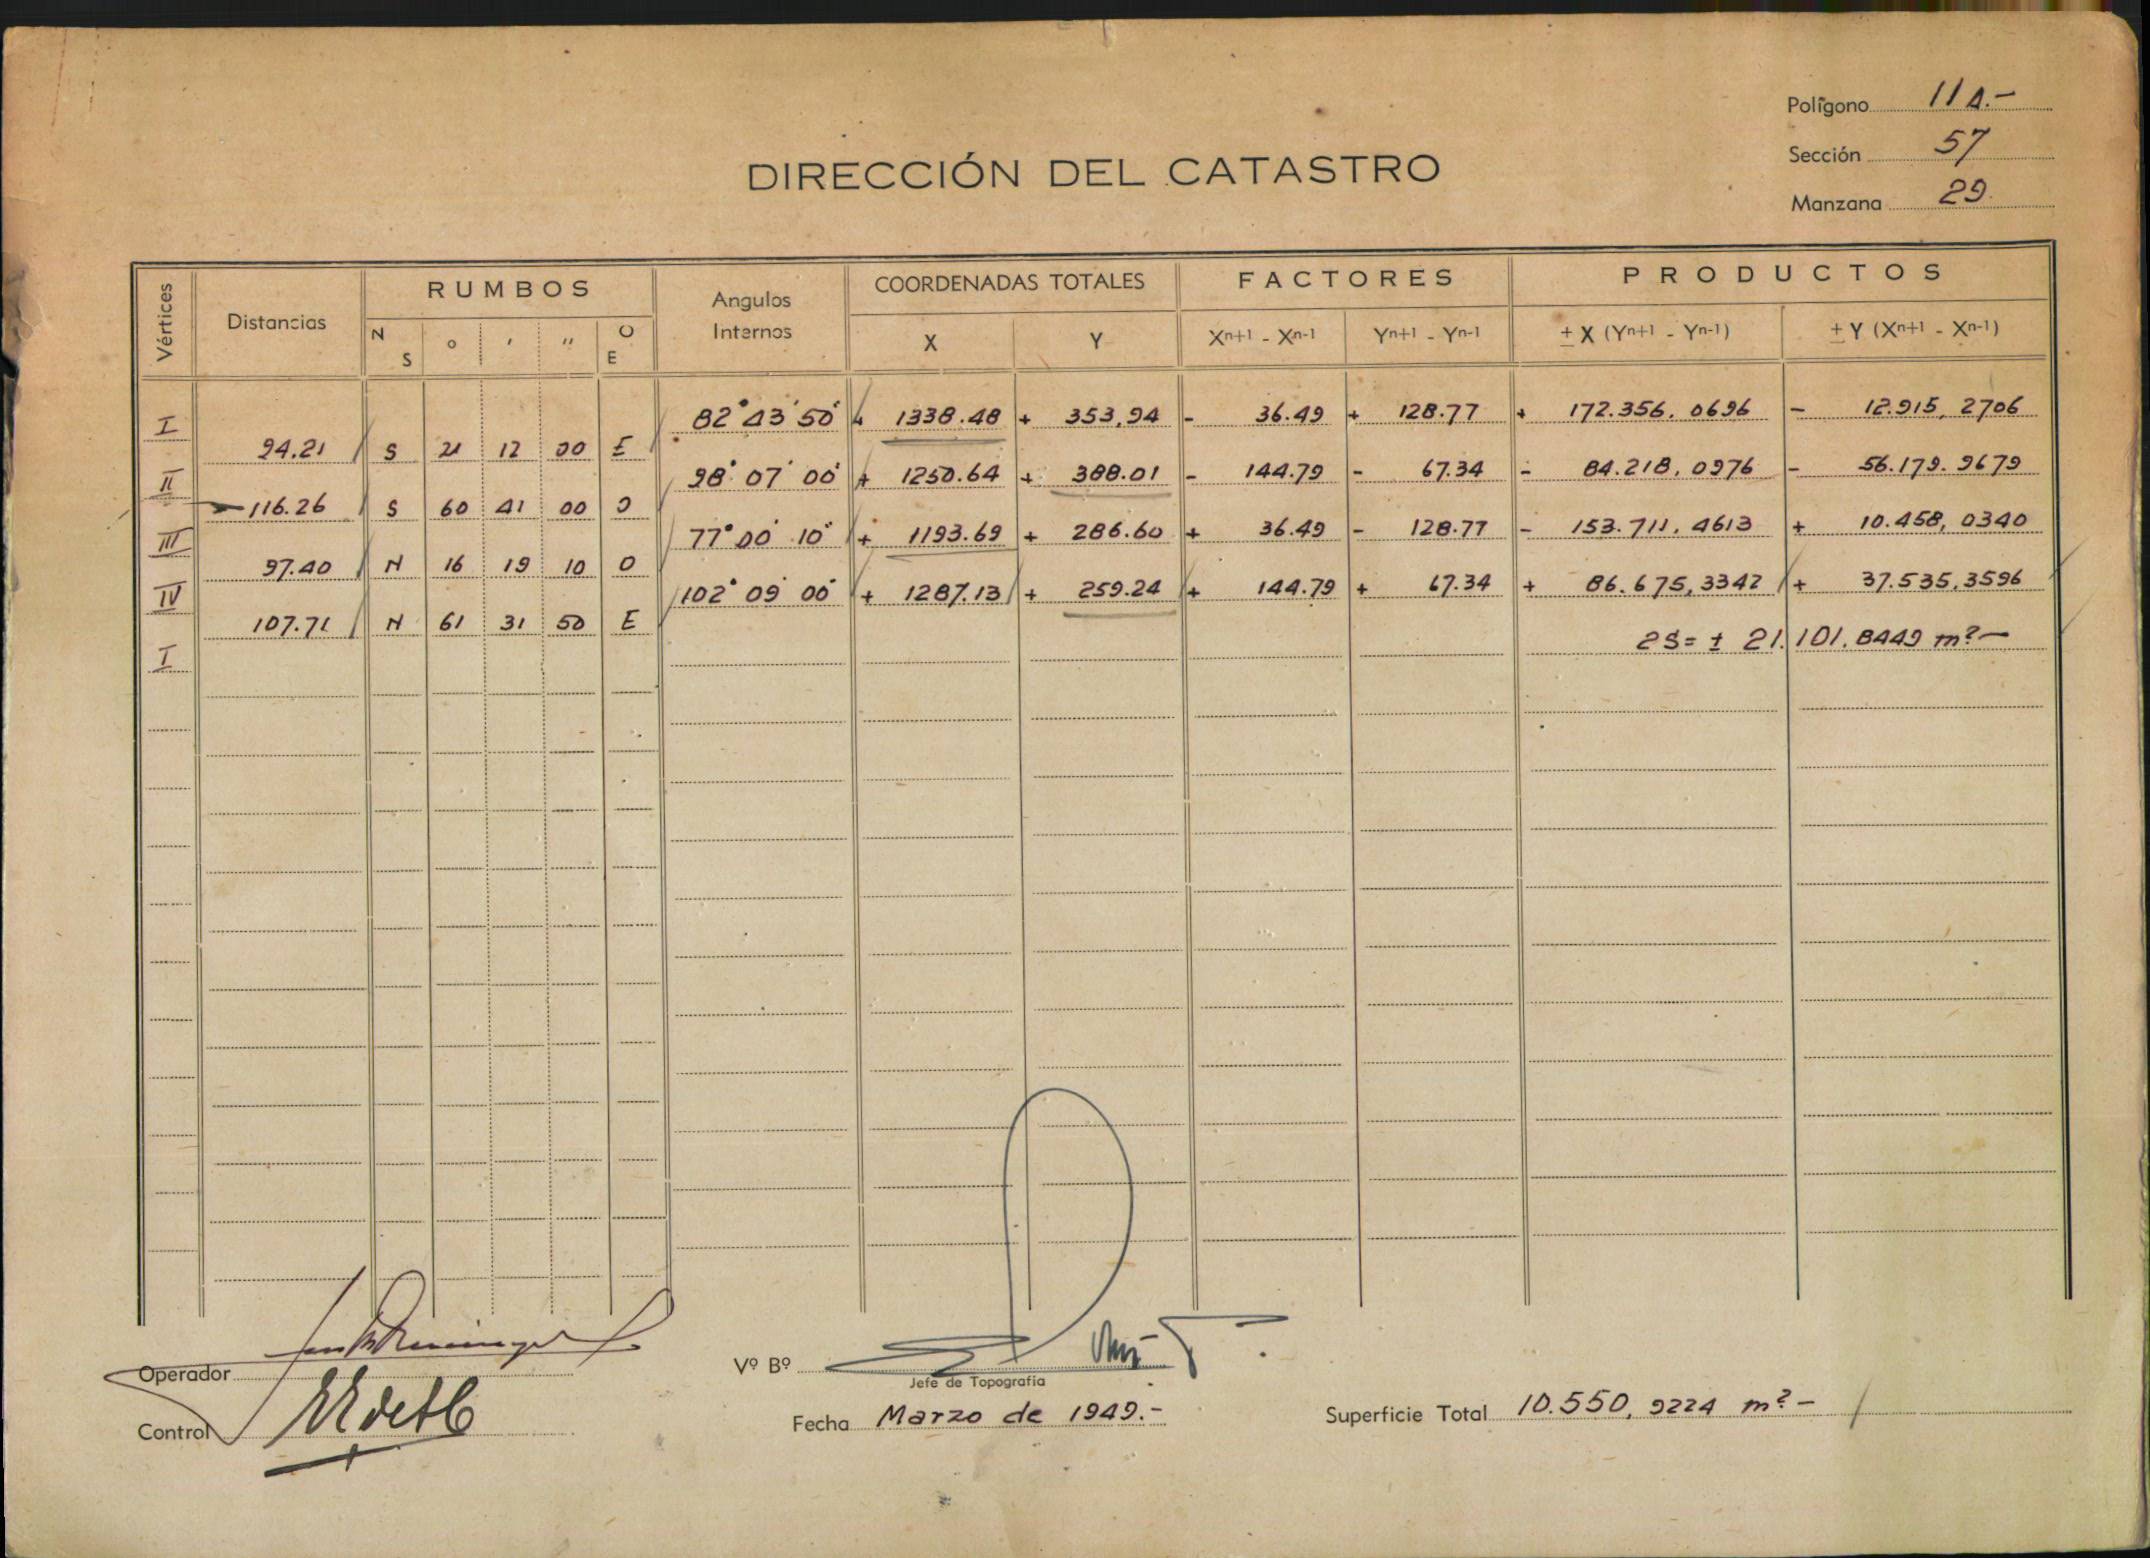 Polígono 11A.-
Sección 57
Manzana 29.
DIRECCIÓN DEL CATASTRO
Vértices Distancias RUMBOS Angulos Internos COORDENADAS TOTALES FACTORES PRODUCTOS
N S ° ' " O E X Y Xn+1 - Xn-1 Yn+1 - Yn-1 ± X (Yn+1 - Yn-1) ± Y (Xn+1 - Xn-1)
I 82° 43' 50" + 1338.48 + 353,94 - 36.49 + 128.77 + 172.356.0696 - 12.915,2706
94.21 S 21 12 00 E
II 98° 07' 00" + 1250.64 + 388.01 - 144.79 - 67.34 - 84.218,0976 - 56.179.9679
116.26 S 60 41 00 O
III 77° 00' 10" + 1193.69 + 286.60 + 36.49 - 128.77 - 153.711.4613 + 10.458,0340
97.40 N 16 19 10 O
IV 102° 09' 00" + 1287.13 + 259.24 + 144.79 + 67.34 + 86.675,3342 + 37.535,3596
107.71 N 61 31 50 E
I 2S= ± 21.101.8449 m²-
Operador
Vº Bº
Jefe de Topografía
Control
Fecha Marzo de 1949.-
Superficie Total 10.550,9224 m²-